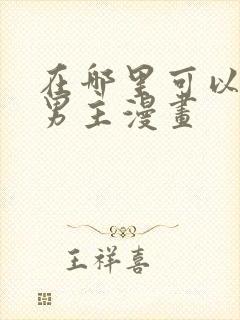 在哪里可以
男主漫畫
王祥喜